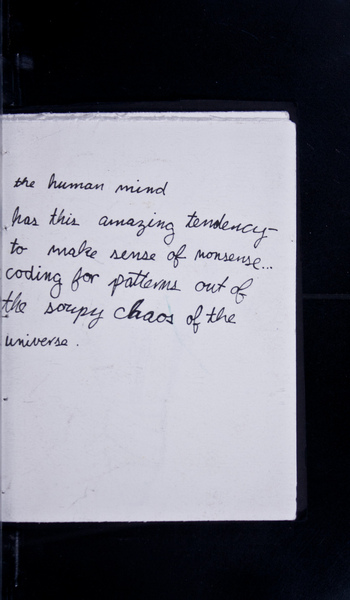 the human mind
has this amazing tendency-
to make sense of nonsense...
coding for patterns out of
the soupy chaos of the
universe.